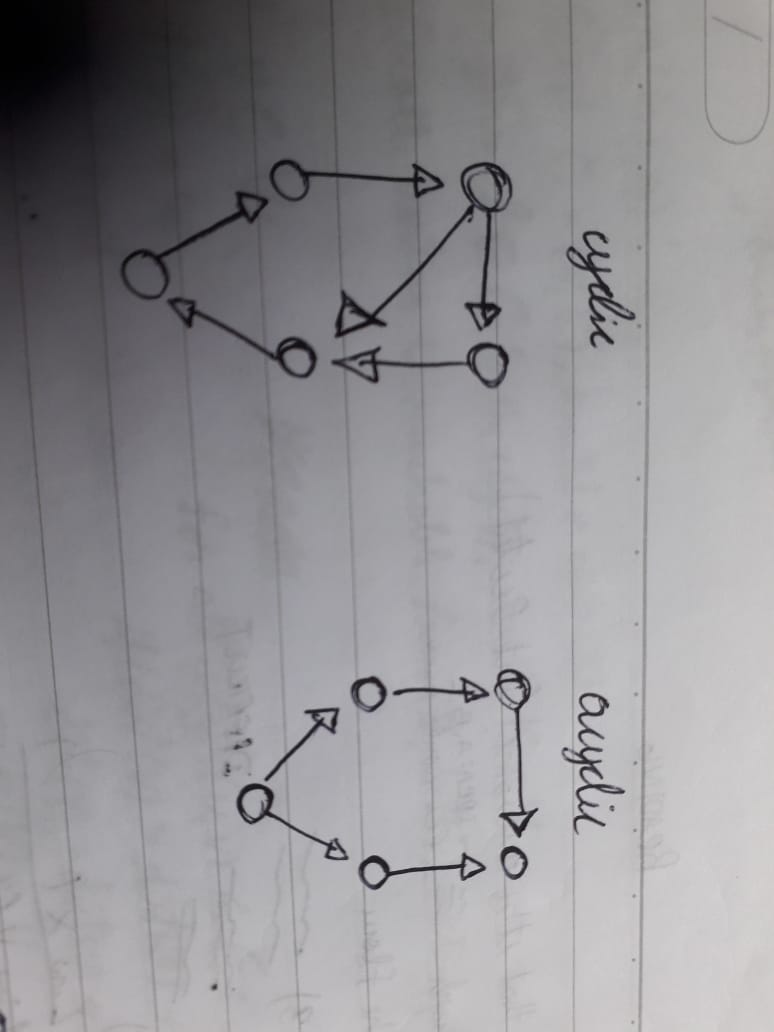 cyclic
acyclic